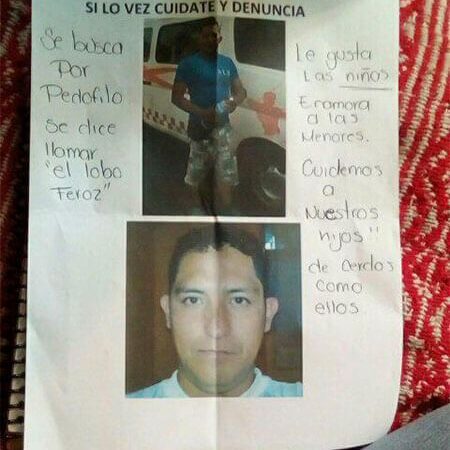 SI LO VEZ CUIDATE Y DENUNCIA
Se busca
Por
Pedofilo
Se dice
llamar
"el lobo
Feroz"
Le gusta
Las niños
Enamora
a las
Menores.
Cuidemos
a
Nuestros
hijos"
de cerdos
como
ellos